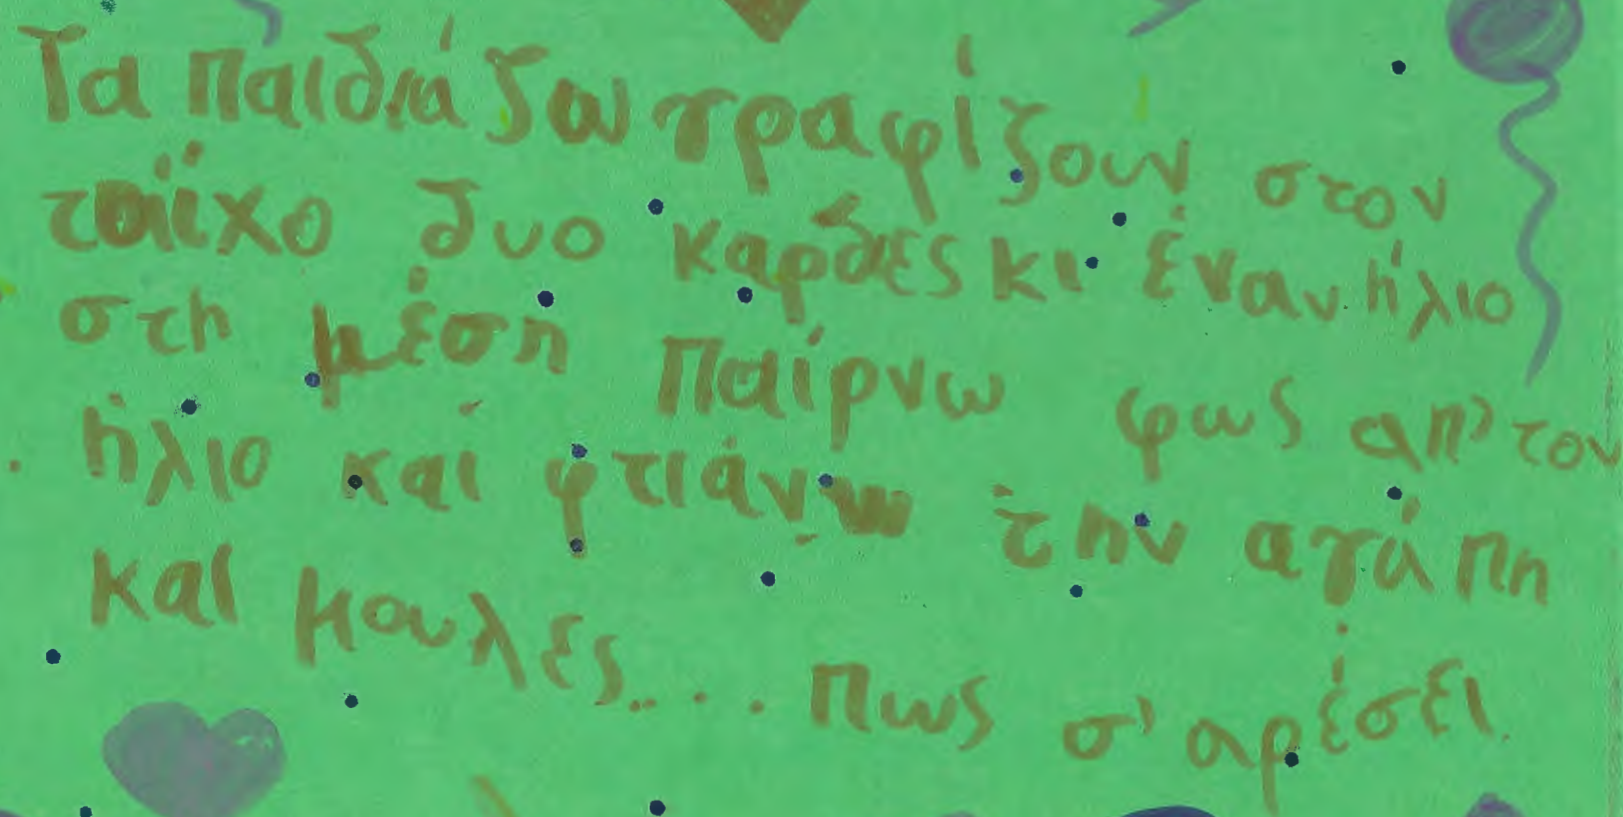 Τα παιδιά ζωγραφίζουν στον
τοίχο δυο καρδιές κι έναν ήλιο
στη μέση Παίρνω φως απ' τον
ήλιο και φτιάνω την αγάπη
και μου λες.... Πως σ' αρέσει